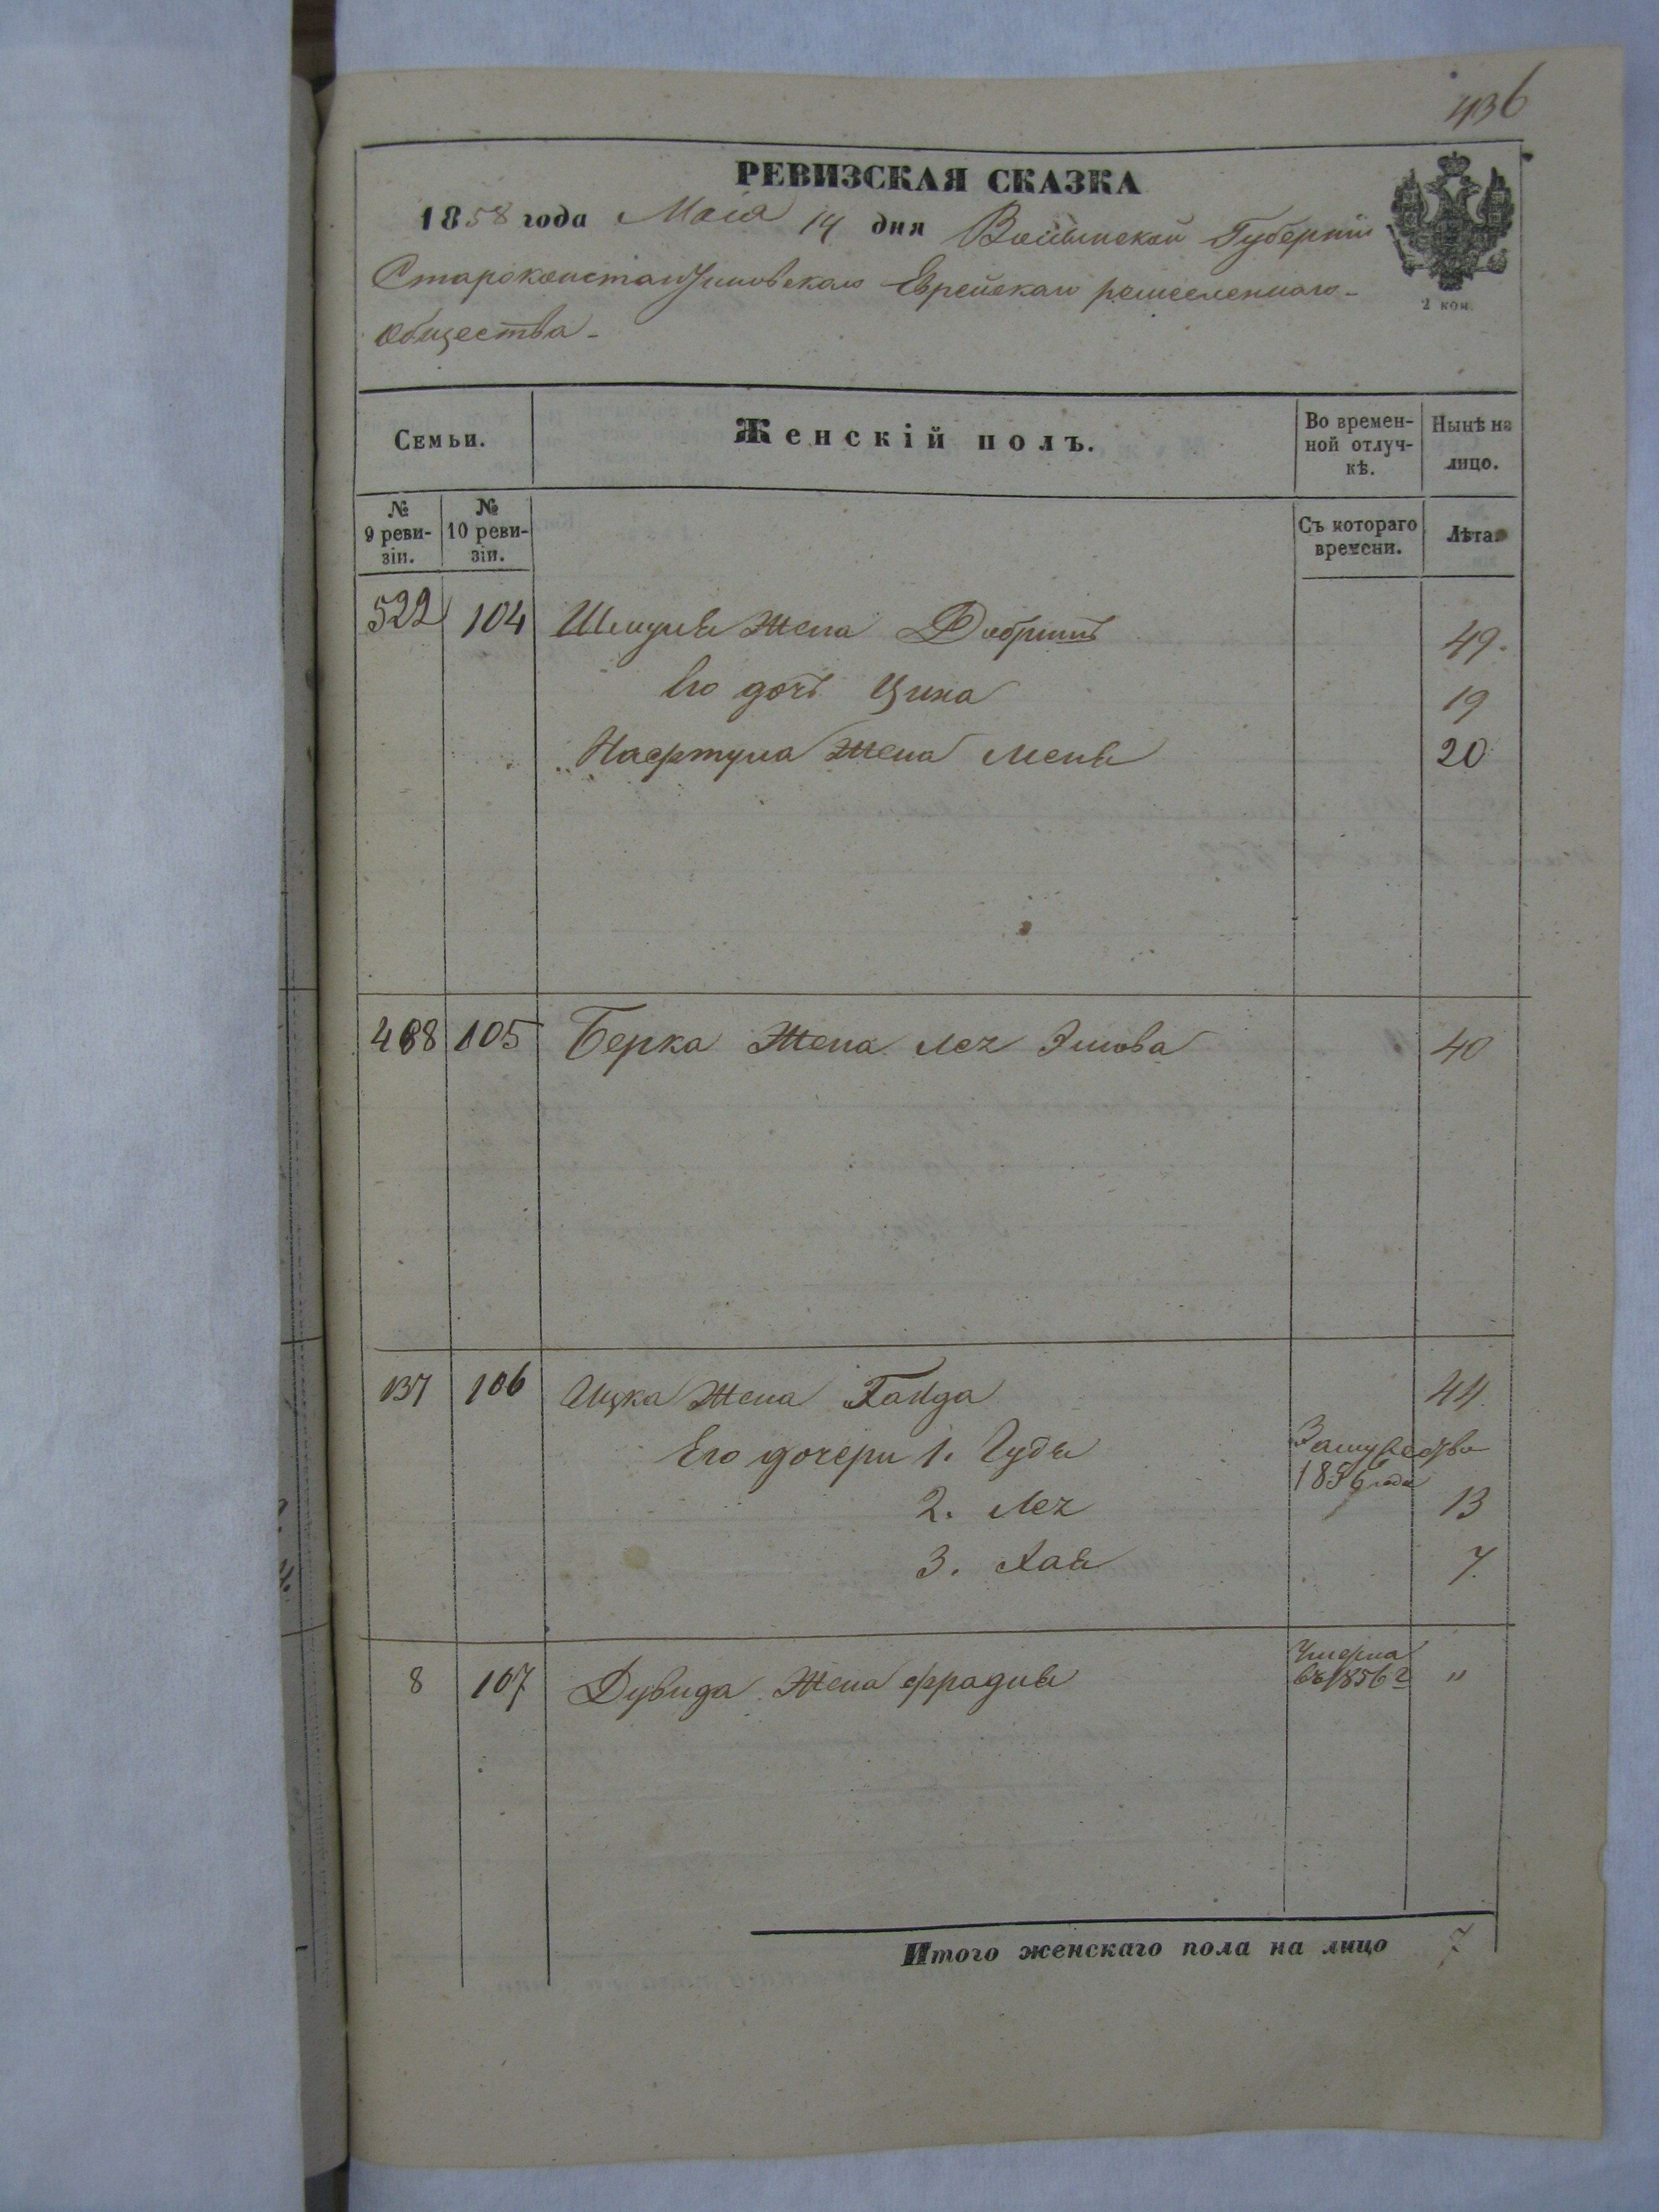 436
РЕВИЗСКАЯ СКАЗКА
1858 года Мая 14 дня Волынской Губерніи
Староконстантиновскаго Еврейскаго
общества
2 коп.
Семьи.
Женскій полъ.
Во времен-
ной отлуч-
кѣ.
Нынѣ на
лицо.
№
9 реви-
зіи.
№
10 реви-
зіи.
Съ котораго
времени.
Лѣта.
522 104 Шмуля Жена 49.
Его дочь Цина 19
Нафтула Жена 20
488 105 Берка Жена Лея 40
137 106 Ицка Жена Гакда 44
Его дочери 1. Гудя Замужество
1856 года
2. Лея 13
3. Хая 7.
8 107 Дувида Жена фрадля Умерла
въ 1856 г "
Итого женскаго пола на лицо 7